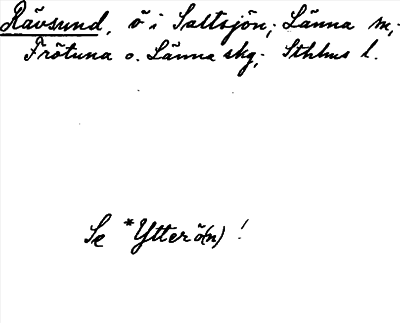 Rävsund, ö i Saltsjön; Länna m;
Frötuna o. Länna skg; Sthlms l.
Se *Ytterö(n) !